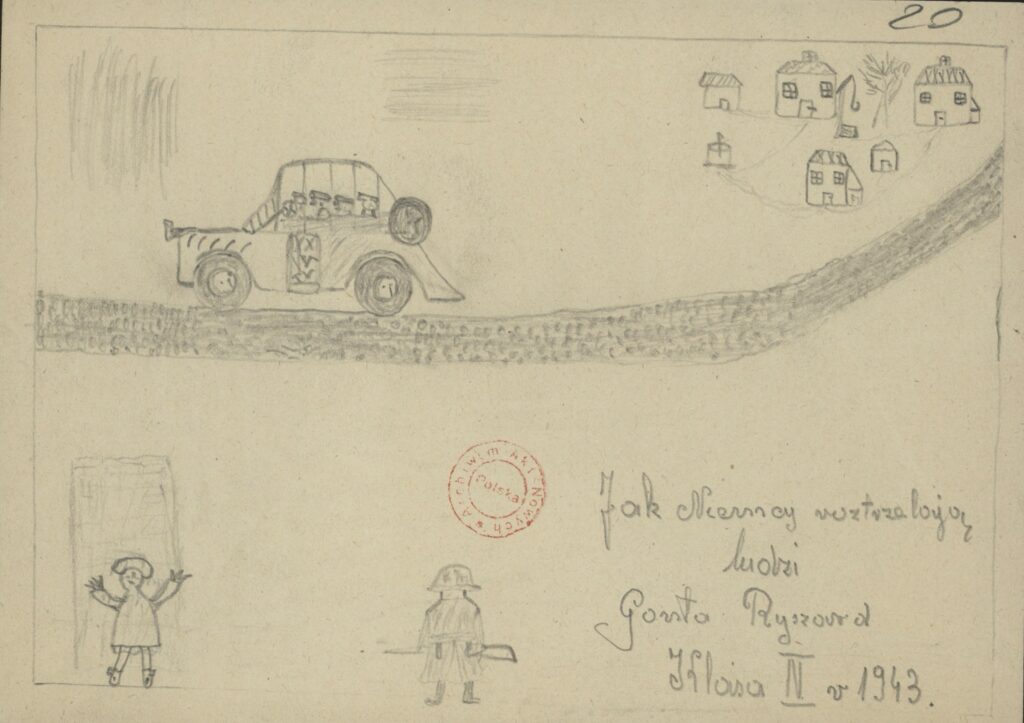 20
Archiwum Akt Nowych
Polska
Jak Niemcy
ludzi
Ryszard
Klasa IV w 1943.